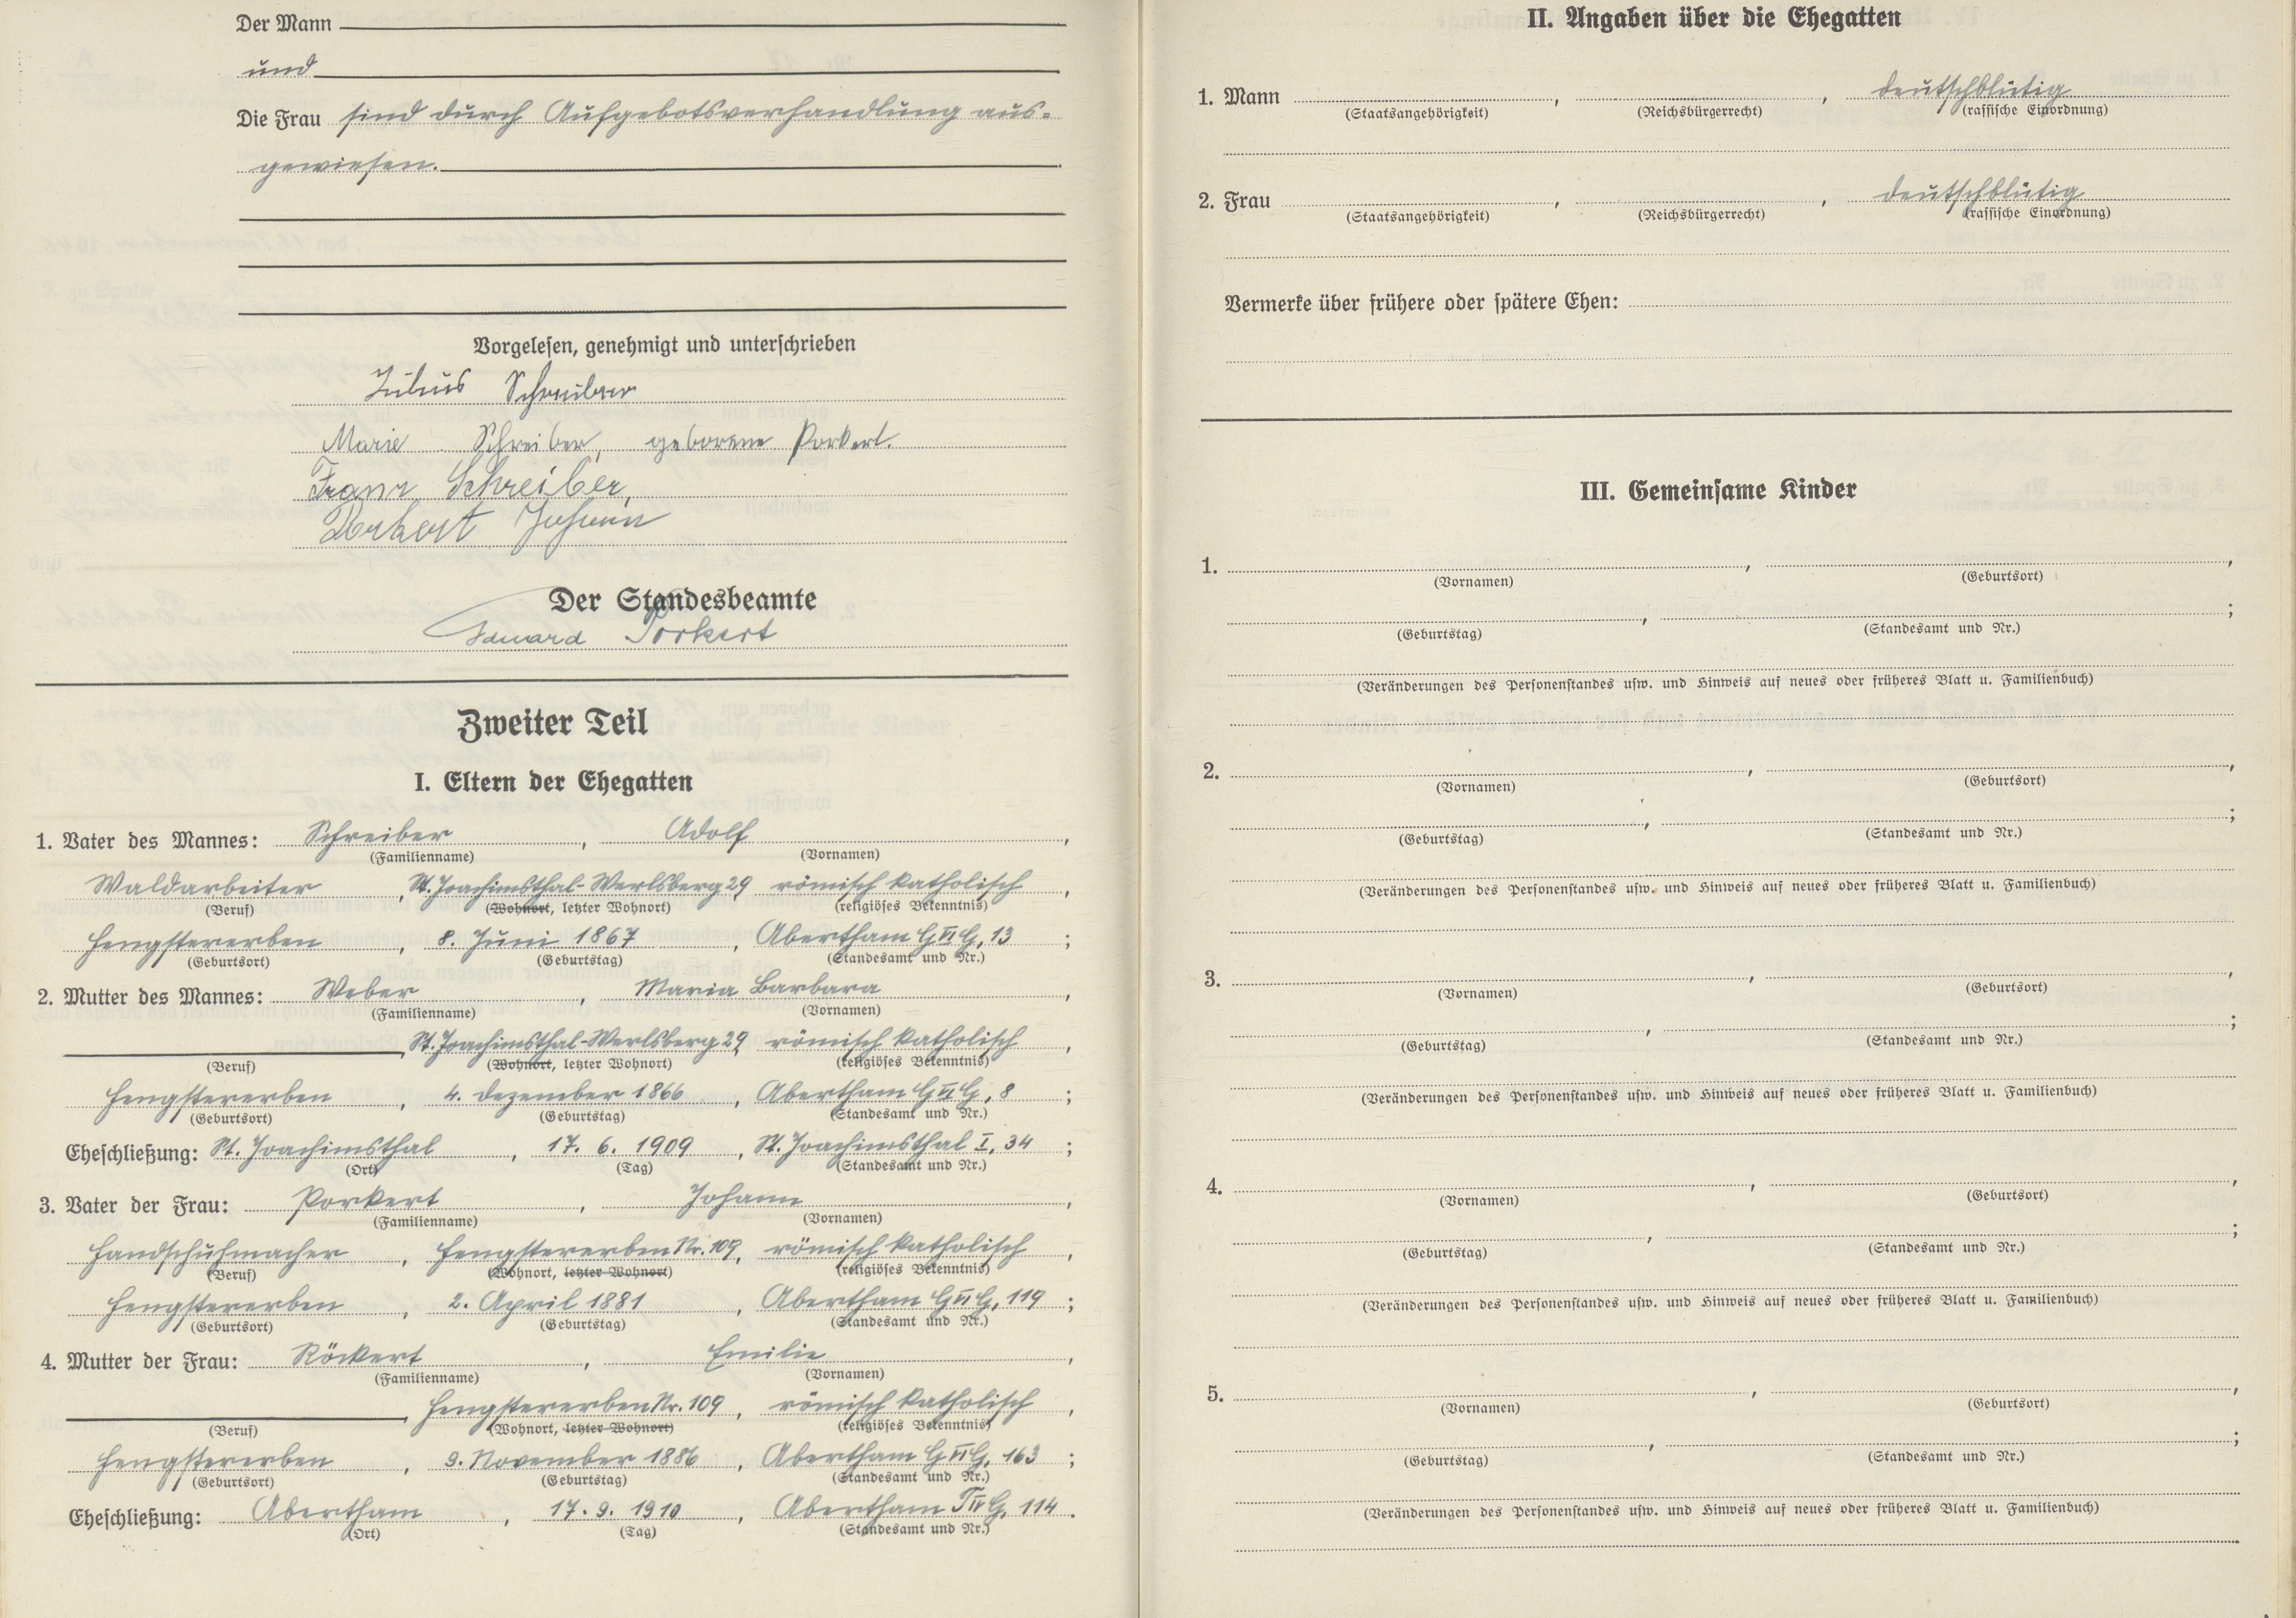 Der Mann
und
Die Frau sind durch Aufgebotsverhandlung aus-
gewiesen.
Vorgelesen, genehmigt und unterschrieben
Julius Schreiber
Marie Schreiber, geborene Porkert.
Franz Schreiber,
Porkert Johann
Der Standesbeamte
Eduard Porkert
Zweiter Teil
I. Eltern der Ehegatten
1. Vater des Mannes: Schreiber, Adolf,
(Familienname) (Vornamen)
Waldarbeiter, St. Joachimsthal-Werlsberg 29 römisch katholisch,
(Beruf) (Wohnort, letzter Wohnort) (religiöses Bekenntnis)
Hengstererben, 8. Juni 1867, Abertham G VI G, 13;
(Geburtsort) (Geburtstag) (Standesamt und Nr.)
2. Mutter des Mannes: Weber, Maria Barbara,
(Familienname) (Vornamen)
, St. Joachimsthal-Werlsberg 29, römisch katholisch,
(Beruf) (Wohnort, letzter Wohnort) (religiöses Bekenntnis)
Hengstererben, 4. Dezember 1866, Abertham G VI G, 8;
(Geburtsort) (Geburtstag) (Standesamt und Nr.)
Eheschließung: St. Joachimsthal, 17. 6. 1909, St. Joachimsthal I, 34;
(Ort) (Tag) (Standesamt und Nr.)
3. Vater der Frau: Porkert, Johann,
(Familienname) (Vornamen)
Handschuhmacher, Hengstererben Nr. 109, römisch katholisch,
(Beruf) (Wohnort, letzter Wohnort) (religiöses Bekenntnis)
Hengstererben, 2. April 1881, Abertham G VI G, 119;
(Geburtsort) (Geburtstag) (Standesamt und Nr.)
4. Mutter der Frau: Röckert, Emilie,
(Familienname) (Vornamen)
, Hengstererben Nr. 109, römisch katholisch,
(Beruf) (Wohnort, letzter Wohnort) (religiöses Bekenntnis)
Hengstererben, 9. November 1886, Abertham G VI G, 163;
(Geburtsort) (Geburtstag) (Standesamt und Nr.)
Eheschließung: Abertham, 17. 9. 1910, Abertham T IV G, 114.
(Ort) (Tag) (Standesamt und Nr.)
II. Angaben über die Ehegatten
1. Mann , , deutschblütig
(Staatsangehörigkeit) (Reichsbürgerrecht) (rassische Einordnung)
2. Frau , , deutschblütig
(Staatsangehörigkeit) (Reichsbürgerrecht) (rassische Einordnung)
Vermerke über frühere oder spätere Ehen:
III. Gemeinsame Kinder
1. , ,
(Vornamen) (Geburtsort)
, ;
(Geburtstag) (Standesamt und Nr.)
(Veränderungen des Personenstandes usw. und Hinweis auf neues oder früheres Blatt u. Familienbuch)
2. , ,
(Vornamen) (Geburtsort)
, ;
(Geburtstag) (Standesamt und Nr.)
(Veränderungen des Personenstandes usw. und Hinweis auf neues oder früheres Blatt u. Familienbuch)
3. , ,
(Vornamen) (Geburtsort)
, ;
(Geburtstag) (Standesamt und Nr.)
(Veränderungen des Personenstandes usw. und Hinweis auf neues oder früheres Blatt u. Familienbuch)
4. , ,
(Vornamen) (Geburtsort)
, ;
(Geburtstag) (Standesamt und Nr.)
(Veränderungen des Personenstandes usw. und Hinweis auf neues oder früheres Blatt u. Familienbuch)
5. , ,
(Vornamen) (Geburtsort)
, ;
(Geburtstag) (Standesamt und Nr.)
(Veränderungen des Personenstandes usw. und Hinweis auf neues oder früheres Blatt u. Familienbuch)